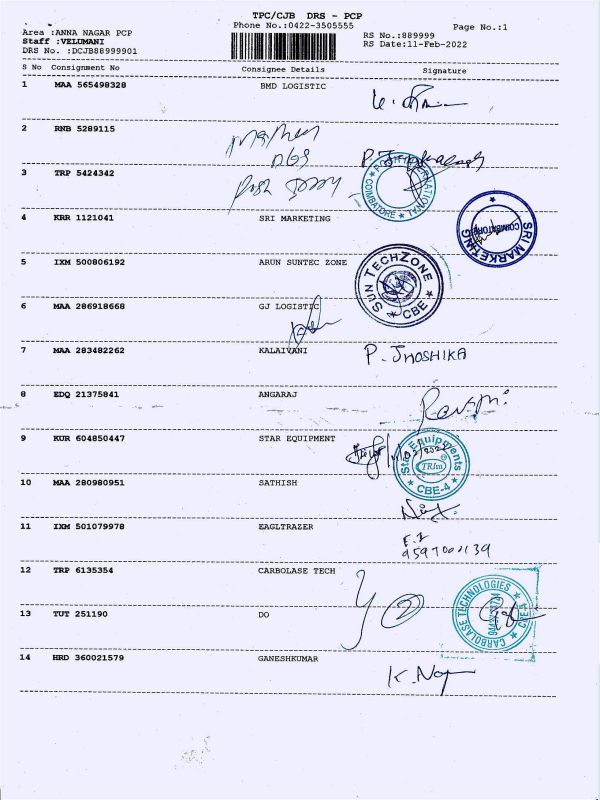 TPC/CJB DRS - PCP
Phone No.:0422-3505555
Page No.:1
Area :ANNA NAGAR PCP
Staff :VELUMANI
DRS No. :DCJB88999901
RS No.:889999
RS Date:11-Feb-2022
S No Consignment No Consignee Details Signature
1 MAA 565498328 BMD LOGISTIC
2 RNB 5289115
3 TRP 5424342
COIMBATORE
4 KRR 1121041 SRI MARKETING
SRI MARKETING COIMBATORE
5 IXM 500806192 ARUN SUNTEC ZONE
SUN TECHZONE CBE
6 MAA 286918668 GJ LOGISTIC
7 MAA 283482262 KALAIVANI P. JHOSHIKA
8 EDQ 21375841 ANGARAJ
9 KUR 604850447 STAR EQUIPMENT
Star Equipments CBE-4
10 MAA 280980951 SATHISH
11 IXM 501079978 EAGLTRAZER
12 TRP 6135354 CARBOLASE TECH
CARBOLASE TECHNOLOGIES
13 TUT 251190 DO
14 HRD 360021579 GANESHKUMAR